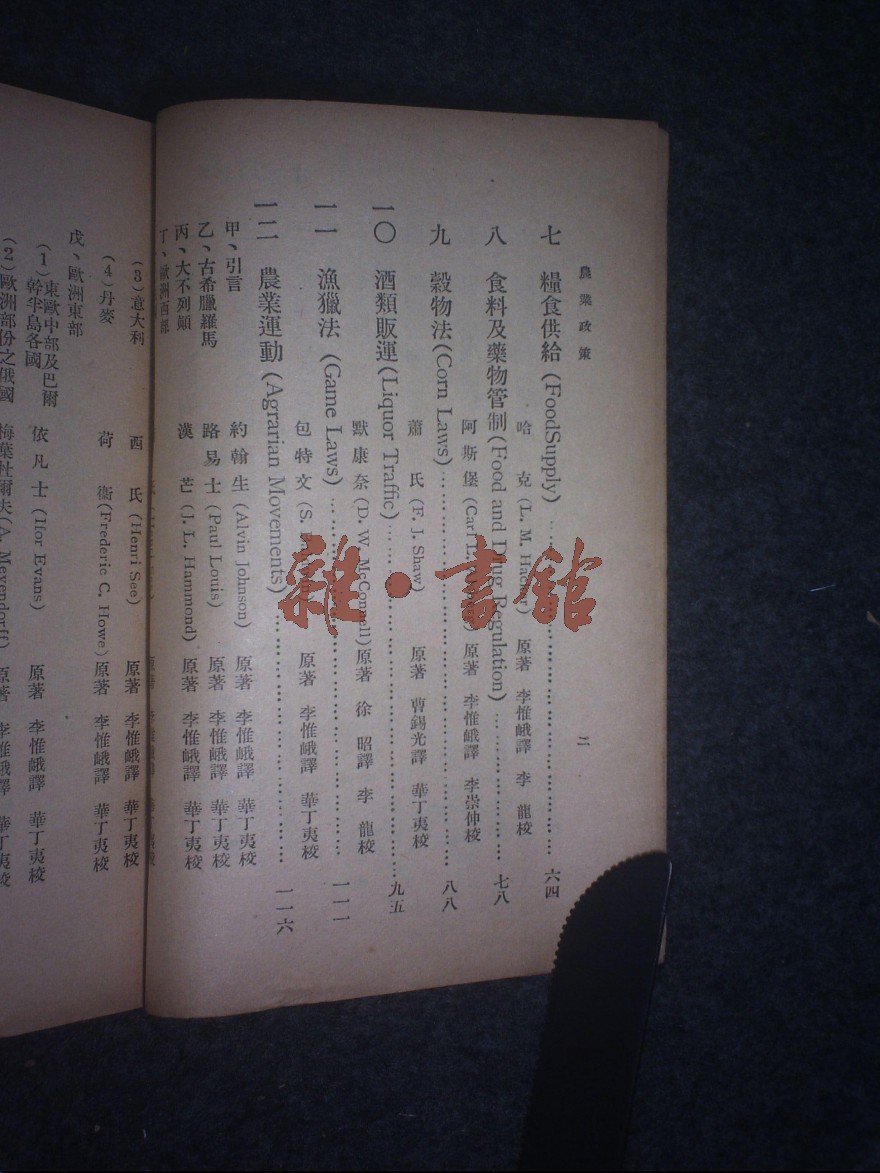 農業政策
二
七 糧食供給 (FoodSupply) …… 六四
哈克 (L. M. Hacker) 原著 李惟峨譯 李龍校
八 食料及藥物管制 (Food and Drug Regulation) …… 七八
阿斯堡 (Carl L. 原著 李惟峨譯 李崇伸校
九 穀物法 (Corn Laws) …… 八八
蕭氏 (F. J. Shaw) 原著 曹錫光譯 華丁夷校
一〇 酒類販運 (Liquor Traffic) …… 九五
默康奈 (D. W. McConnell) 原著 徐昭譯 李龍校
一一 漁獵法 (Game Laws) …… 一一一
包特文 (S. 原著 李惟峨譯 華丁夷校
一二 農業運動 (Agrarian Movements) …… 一一六
甲、引言 約翰生 (Alvin Johnson) 原著 李惟峨譯 華丁夷校
乙、古希臘羅馬 路易士 (Paul Louis) 原著 李惟峨譯 華丁夷校
丙、大不列顛 漢芒 (J. L. Hammond) 原著 李惟峨譯 華丁夷校
丁、歐洲西部
(3) 意大利 西氏 (Henri See) 原著 李惟峨譯 華丁夷校
(4) 丹麥 荷衞 (Frederic C. Howe) 原著 李惟峨譯 華丁夷校
戊、歐洲東部
(1) 東歐中部及巴爾幹半島各國 依凡士 (Ifor Evans) 原著 李惟峨譯 華丁夷校
(2) 歐洲部份之俄國 梅葉杜爾夫 (A. Meyendorff) 原著 李惟峨譯 華丁夷校
雜·書館